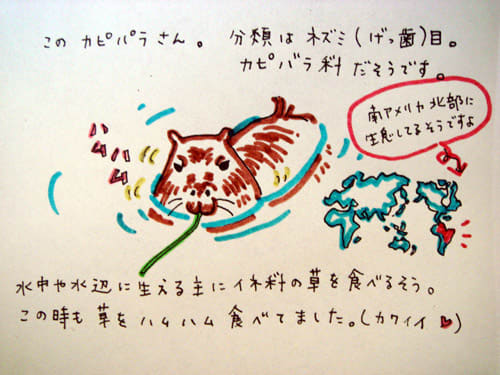 この カピバラさん。 分類は ネズミ(げっ歯)目。
カピバラ科 だそうです。
南アメリカ北部に
生息してるそうですよ
ハム
ハム
水中や水辺に生える主にイネ科の草を食べるそう。
この時も 草を ハムハム 食べてました。(カワイイ♥)